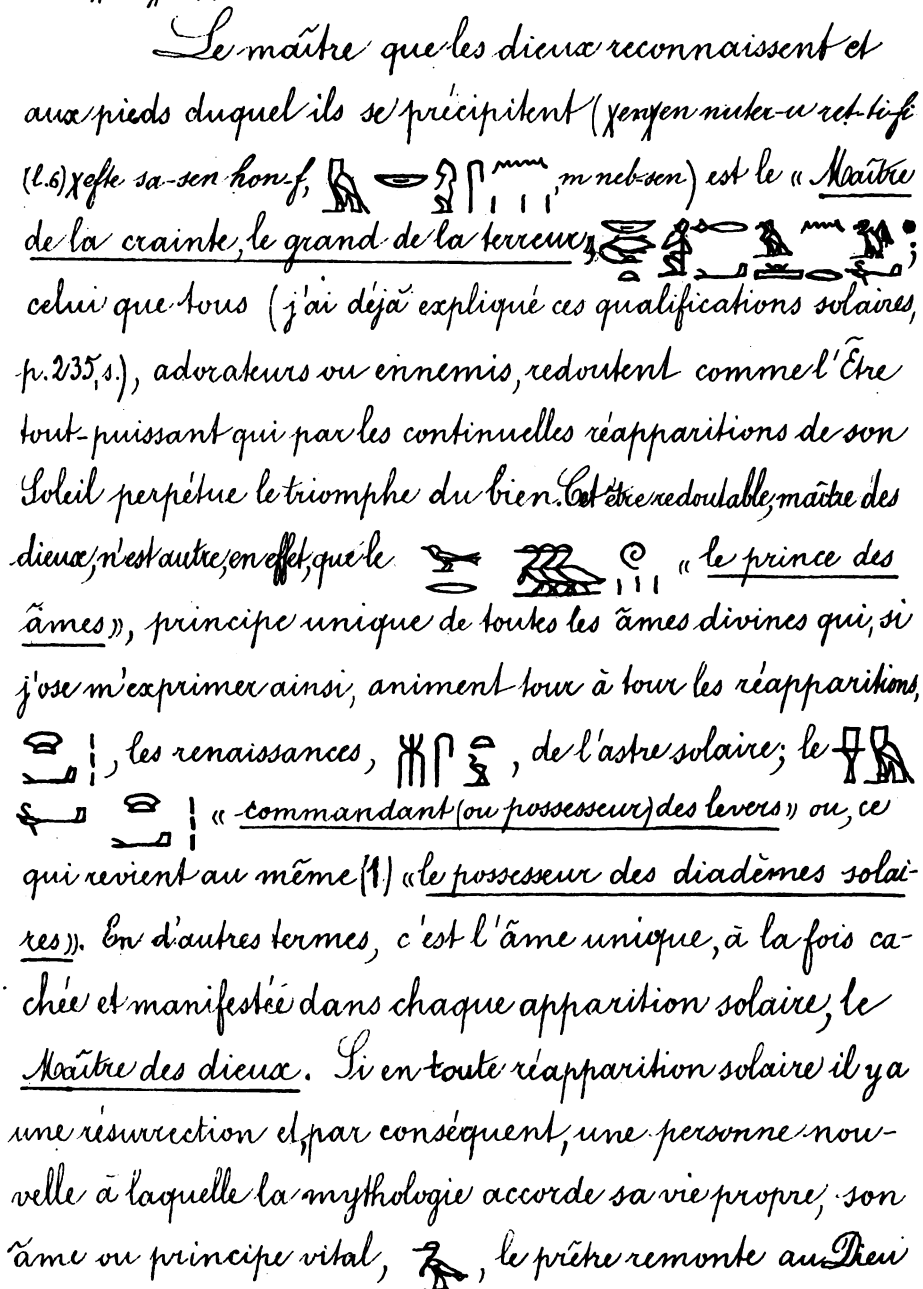 Le maître que les dieux reconnaissent et
aux pieds duquel ils se précipitent (χenχen nuter-u ret-ti-fi
(l.6) χefte sa-sen hon-f, m neb-sen) est le « Maître
de la crainte, le grand de la terreur,
celui que tous (j'ai déjà expliqué ces qualifications solaires,
p. 235, s.), adorateurs ou ennemis, redoutent comme l'Être
tout-puissant qui par les continuelles réapparitions de son
Soleil perpétue le triomphe du bien. Cet être redoutable, maître des
dieux, n'est autre, en effet, que le « le prince des
âmes », principe unique de toutes les âmes divines qui, si
j'ose m'exprimer ainsi, animent tour à tour les réapparitions,
, les renaissances, , de l'astre solaire; le
« commandant (ou possesseur) des levers » ou, ce
qui revient au même (1) « le possesseur des diadèmes solai-
res ». En d'autres termes, c'est l'âme unique, à la fois ca-
chée et manifestée dans chaque apparition solaire, le
Maître des dieux. Si en toute réapparition solaire il y a
une résurrection et, par conséquent, une personne nou-
velle à laquelle la mythologie accorde sa vie propre, son
âme ou principe vital, , le prêtre remonte au Dieu